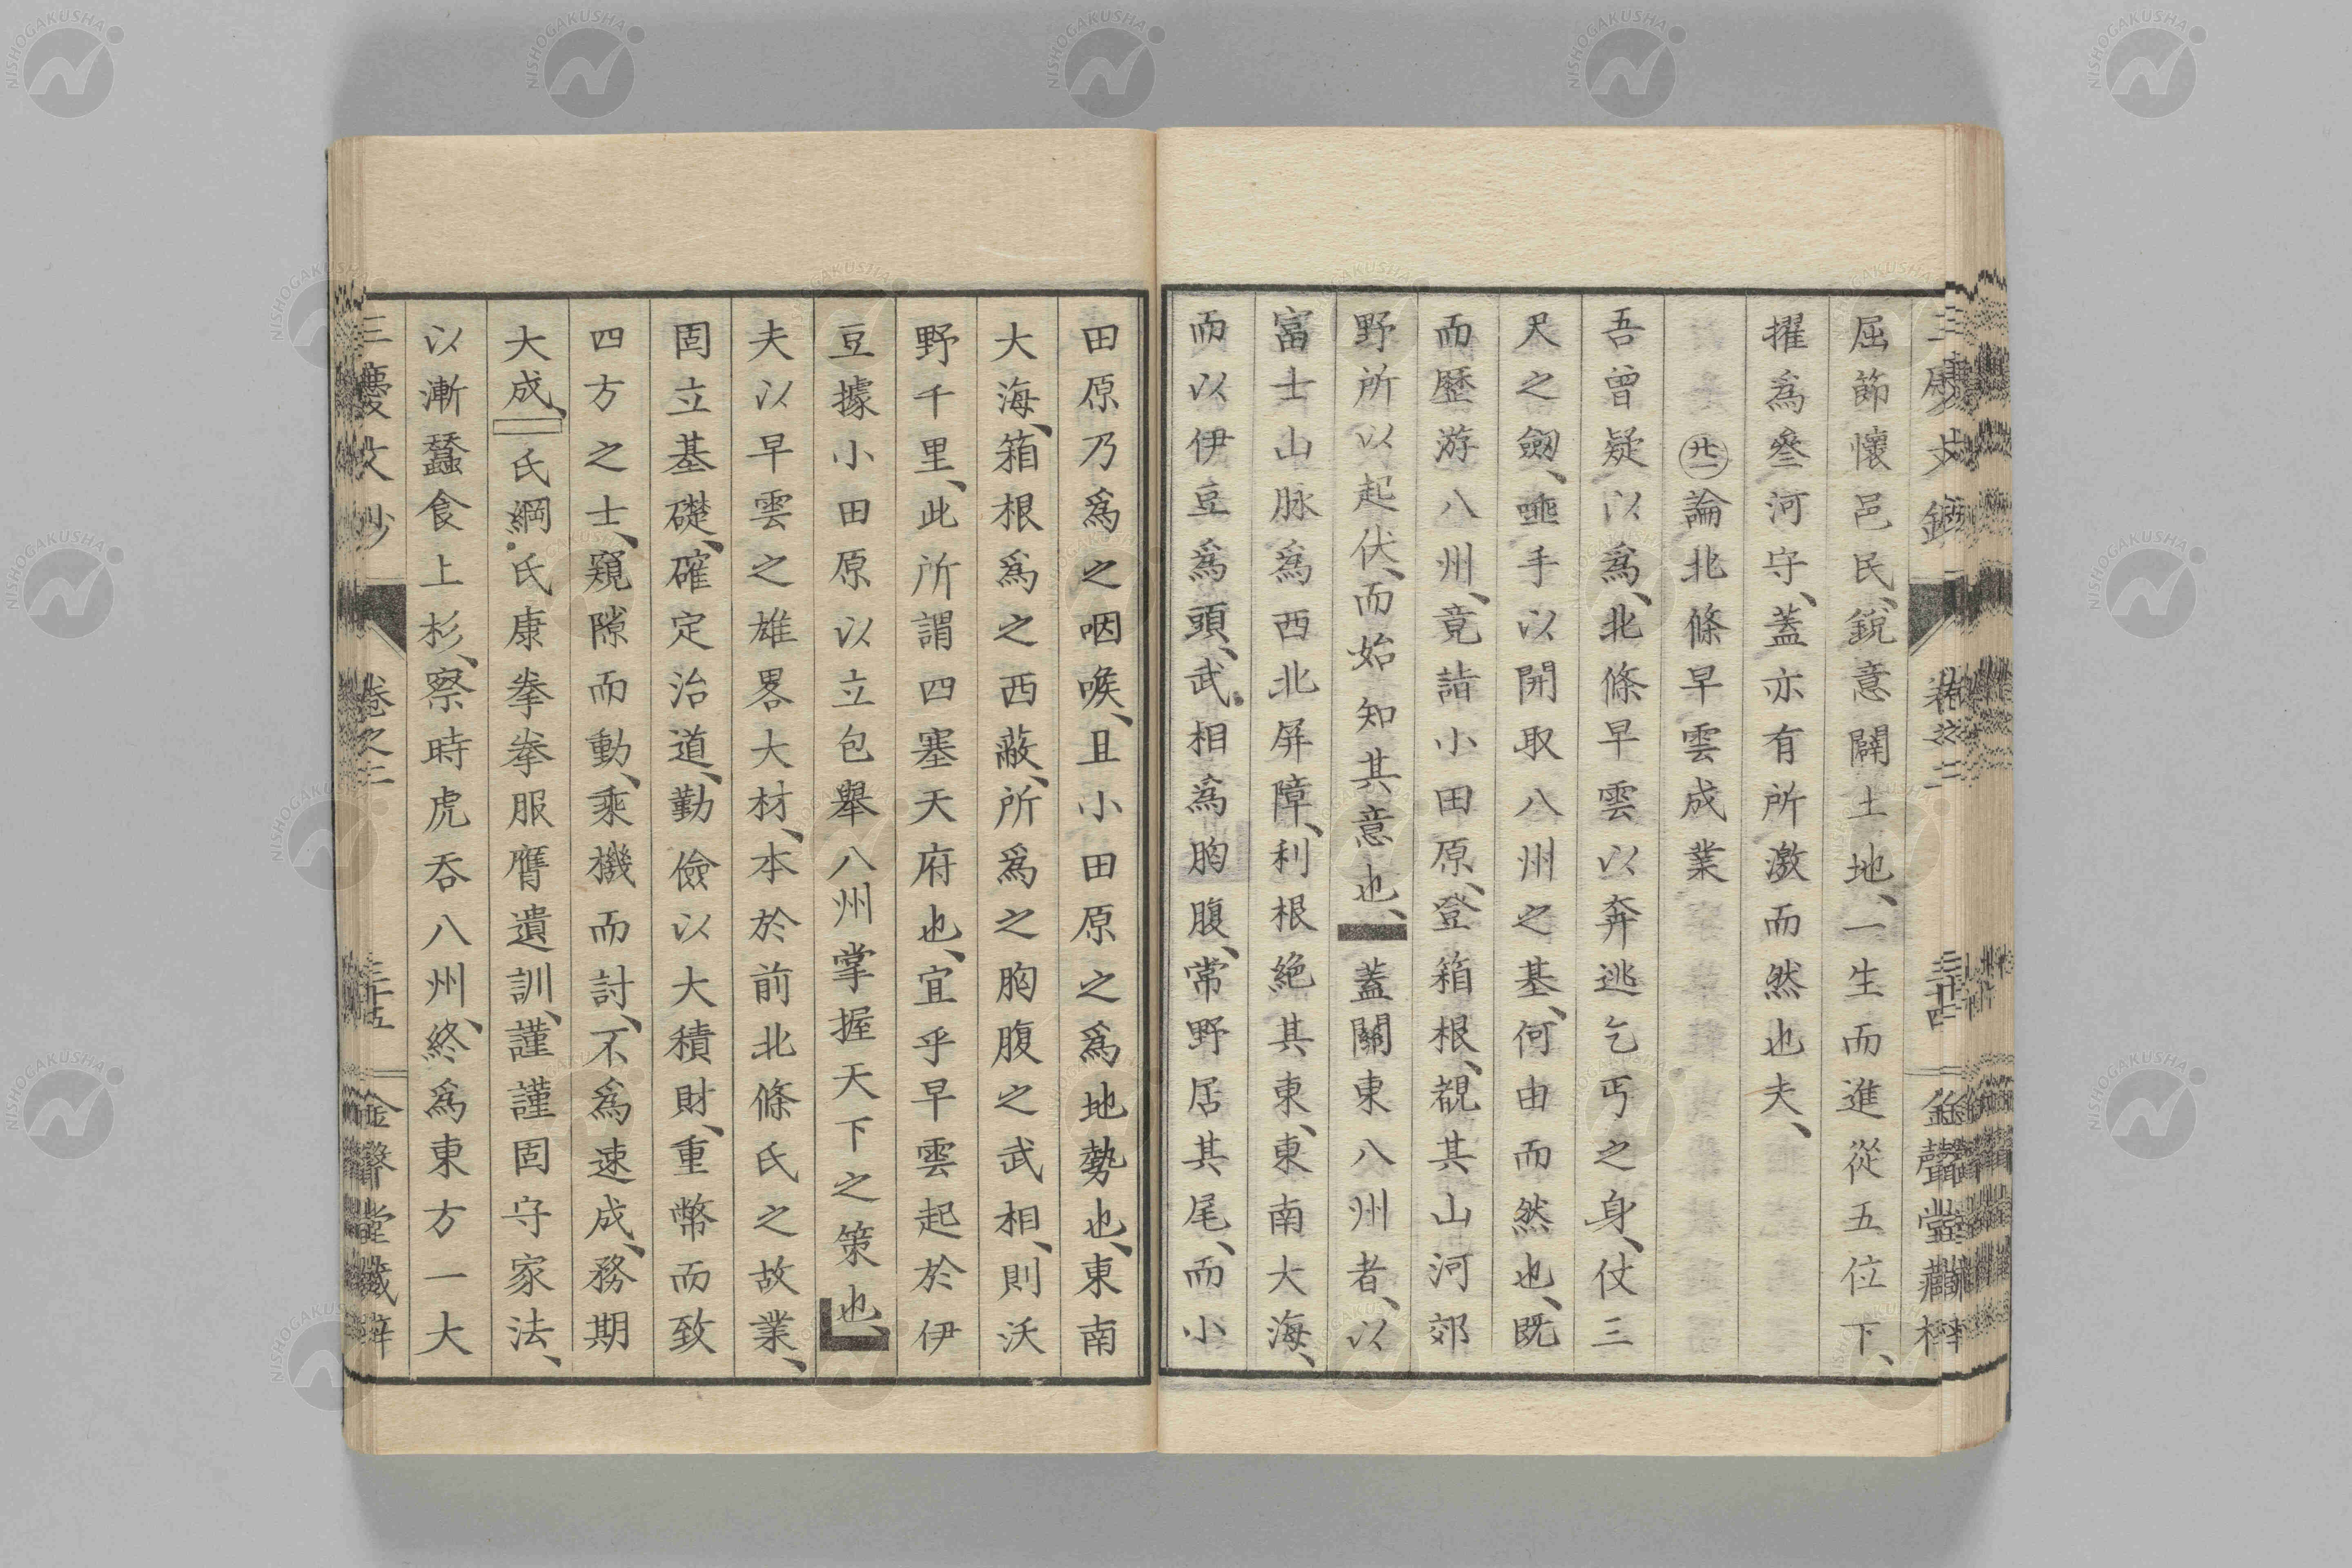 屈節懷邑民、銳意闢土地、一生而進從五位下、
擢爲參河守、蓋亦有所激而然也夫、
㊁論北條早雲成業
吾曾疑以爲、北條早雲以奔逃乞丐之身、仗三
尺之劔、垂手以開取八州之基、何由而然也、既
而歷游八州、竟詣小田原、登箱根、覩其山河郊
野所以起伏、而始知其意也、蓋關東八州者、以
富士山脉爲西北屏障、利根絶其東、東南大海、
而以伊豆爲頭、武相爲胸腹、常野居其尾、而小
田原乃爲之咽喉、且小田原之爲地勢也、東南
大海、箱根爲之西蔽、所爲之胸腹之武相、則沃
野千里、此所謂四塞天府也、宜乎早雲起於伊
豆據小田原以立包舉八州掌握天下之策也、
夫以早雲之雄畧大材、本於前北條氏之故業、
固立基礎、確定治道、勤儉以大積財、重幣而致
四方之士、窺隙而動、乘機而討、不爲速成、務期
大成、氏綱氏康拳拳服膺遺訓、謹謹固守家法、
以漸蠶食上杉、察時虎吞八州、終爲東方一大
三慶文鈔 卷之二 三十五 金聲堂藏梓
NISHOGAKUSHA